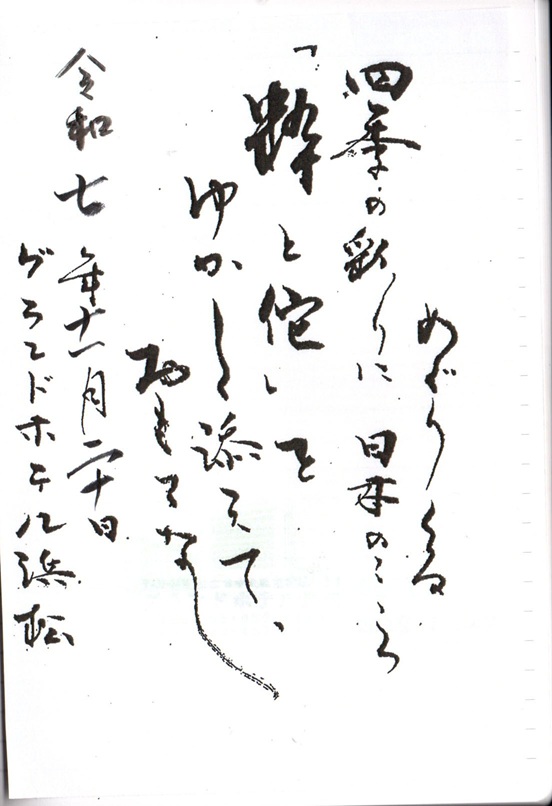 めぐりくる
四季の彩りに 日本のこころ
「粋と侘」を
ゆかしく添えて、
おもてなし
令和七年十一月二十日
グランドホテル浜松